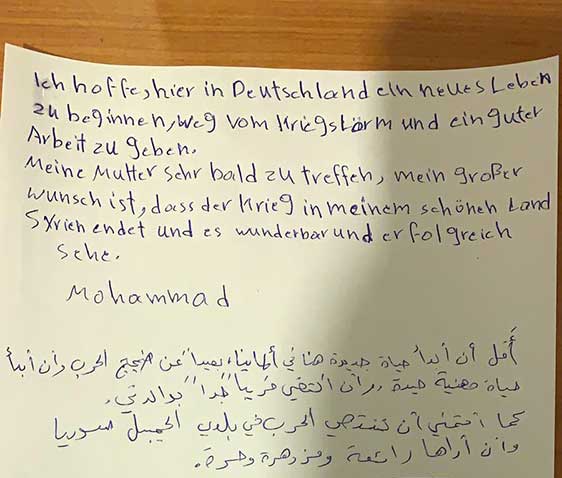 Ich hoffe, hier in Deutschland ein neues Leben
zu beginnen, weg vom Kriegslärm und ein guter
Arbeit zu geben.
Meine Mutter sehr bald zu treffen, mein großer
wunsch ist, dass der Krieg in meinem schönen Land
Syrien endet und es wunderbar und erfolgreich
sehe.
Mohammad
أمل أن أبدأ حياة جديدة هنا في ألمانيا، بعيداً عن ضجيج الحرب وأن أبدأ
حياة مهنية جيدة، وأن ألتقي قريباً "جداً" بوالدتي.
كما أتمنى أن تنتهي الحرب في بلدي الجميل سوريا
وأن أراها رائعة ومزدهرة وحرة.